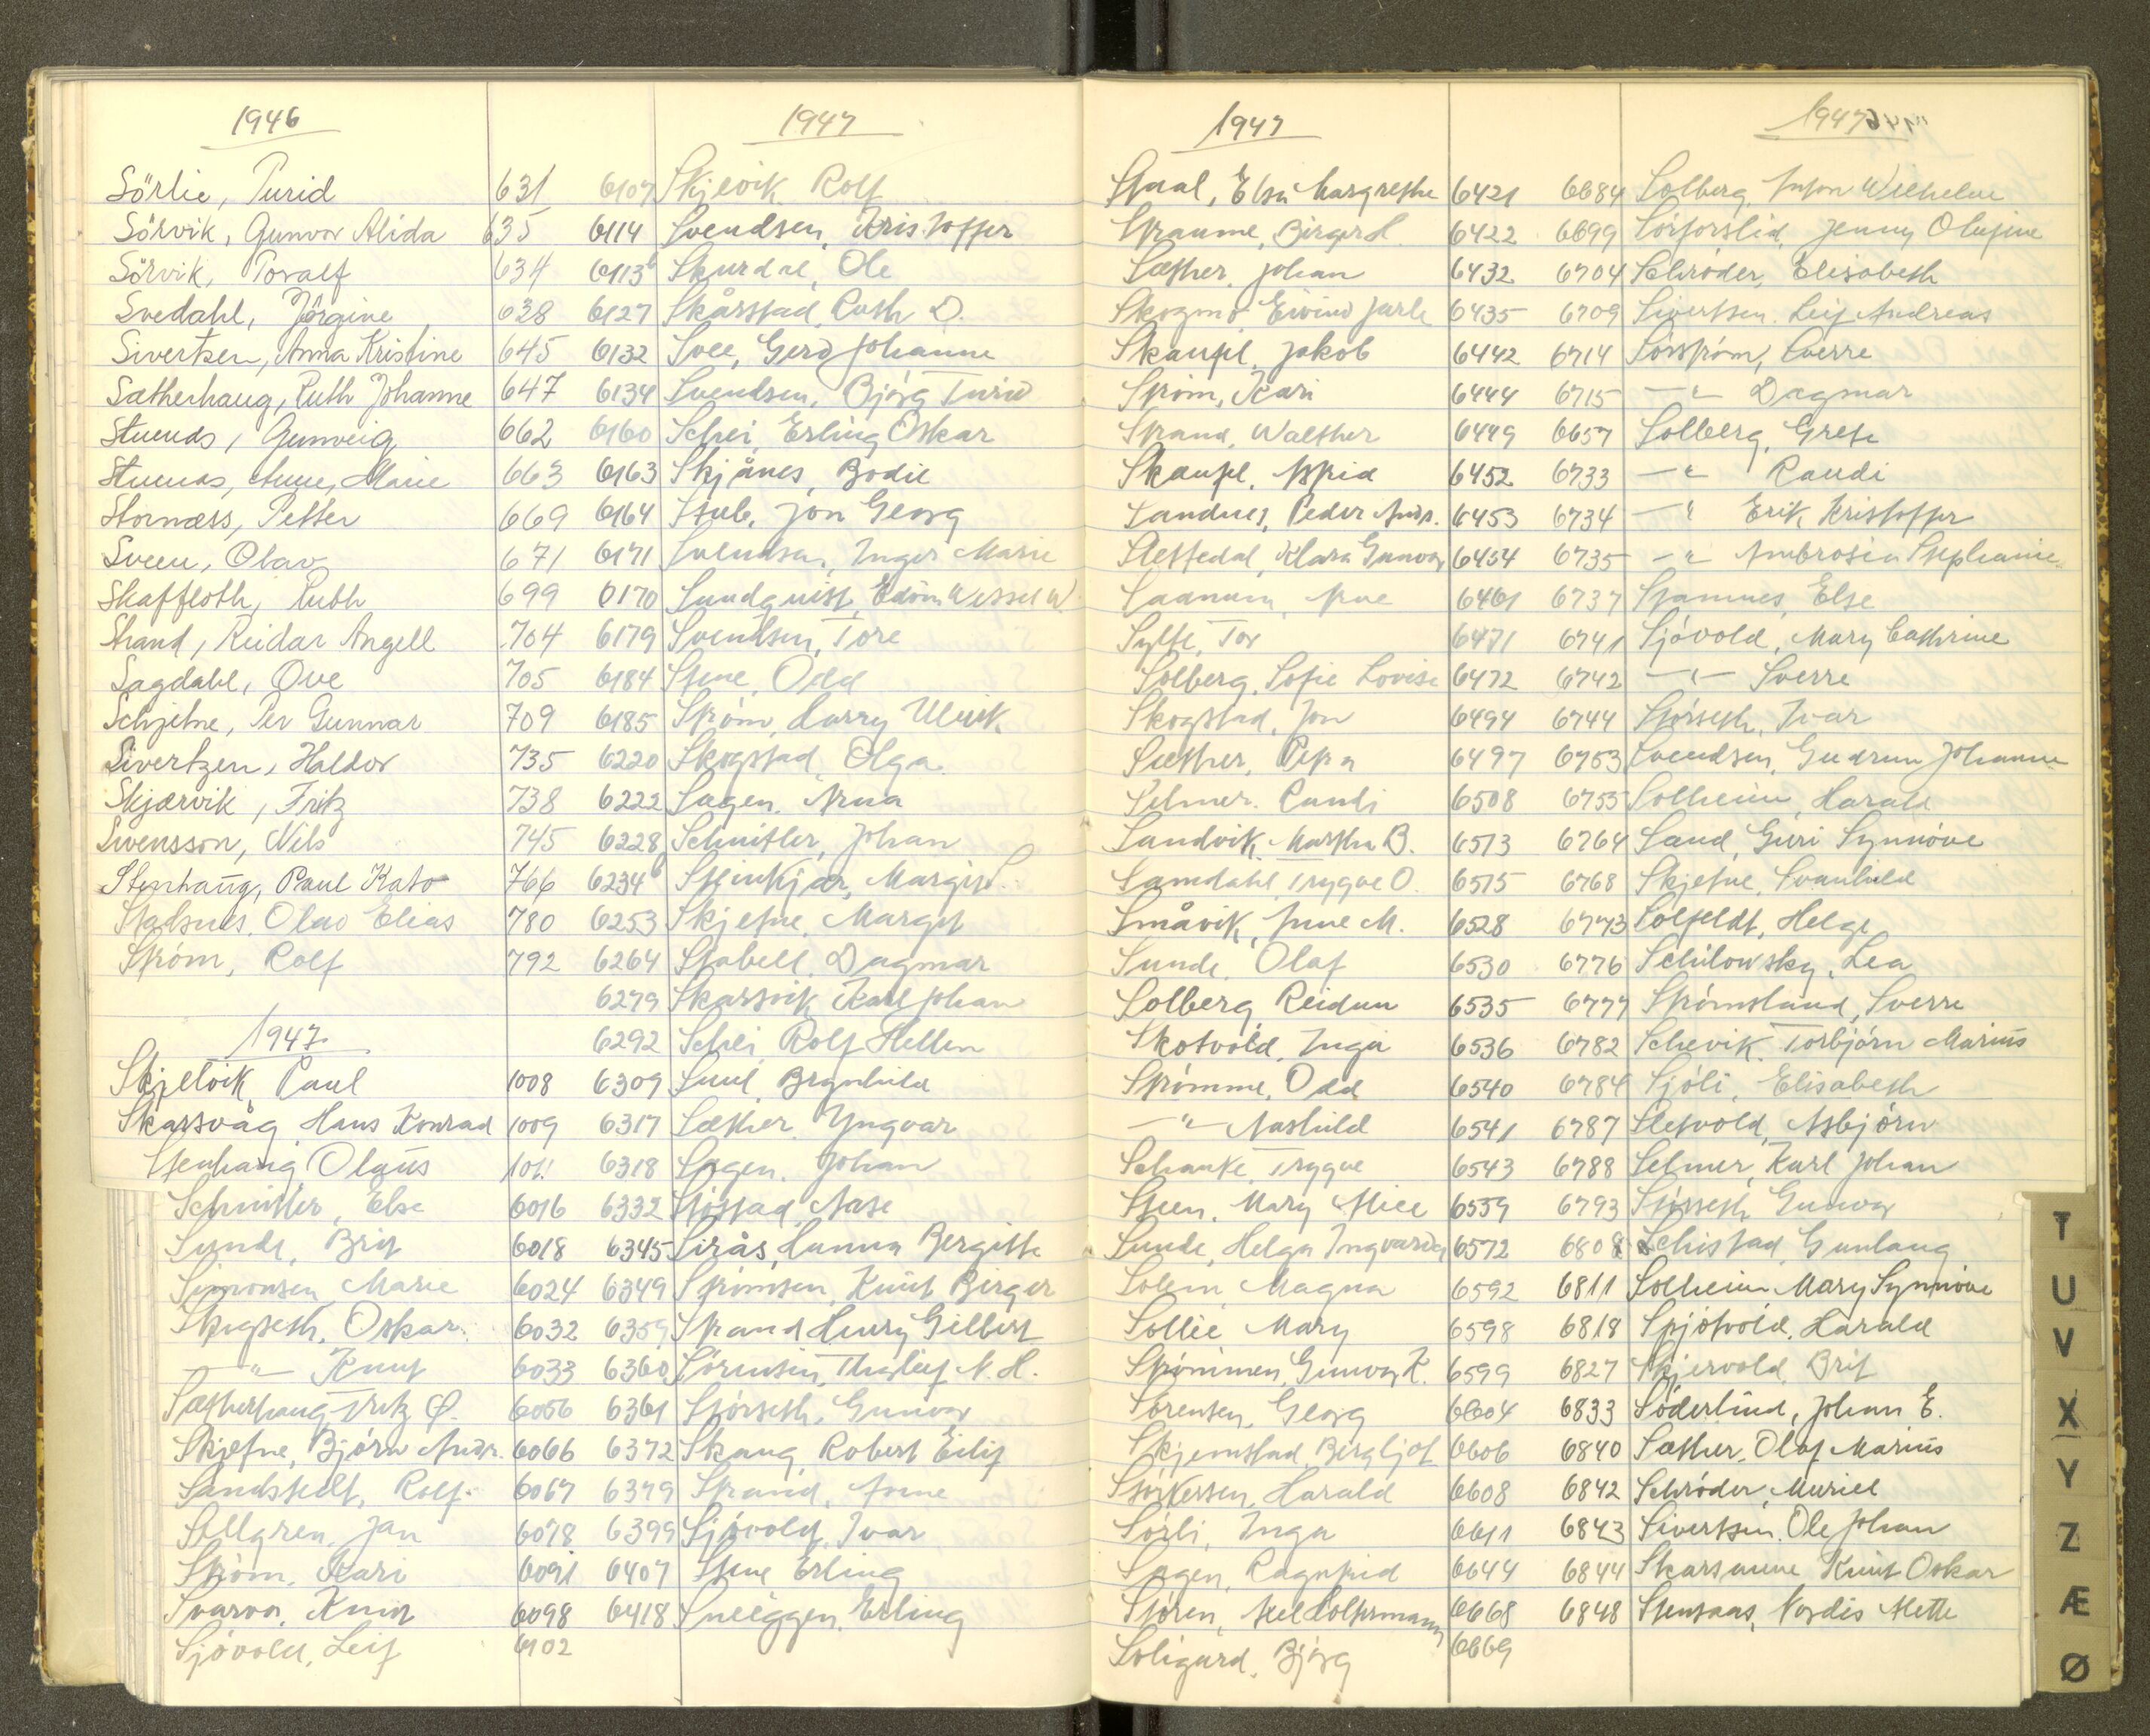 1946
Sörlie, Turid 631
Sörvik, Gunvor Alida 635
Sörvik, Toralf 634
Svedahl, Jörgine 638
Sivertsen, Anna Kristine 645
Sætherhaug, Ruth Johanne 647
Stuenes, Gunveig 662
Stuenes, Anne, Marie 663
Stornæss, Petter 669
Sveen, Olav 671
Skaffloth, Ruth 699
Strand, Reidar Angell 704
Sagdahl, Ove 705
Schjetne, Per Gunnar 709
Sivertzen, Haldor 735
Skjærvik, Fritz 738
Svensson, Nils 745
Stenhaug, Paul Kato 766
Stadsnes, Olav Elias 780
Strøm, Rolf 792
1947
Skjelvik, Paul 1008
Skarsvåg, Hans Konrad 1009
Stenhaug Olaus 1011
Schnitler, Else 6016
Sunde, Brit 6018
Simonsen, Marie 6024
Skogseth, Oskar 6032
—"— Knut 6033
Sætherhaug Fritz Ø. 6056
Skjetne, Bjørn Andr. 6066
Sandstedt, Rolf 6067
Sellgren, Jan 6078
Strøm, Kari 6091
Svarva, Knut 6098
Sjøvold, Leif 6102
1947
6107 Skjelvik Rolf
6114 Svendsen, Kristoffer
6113 Skurdal, Ole
6127 Skårstad, Ruth D.
6132 Svee, Gerd Johanne
6134 Svendsen, Bjørg Turid
6160 Schei, Erling Oskar
6163 Skjånes, Bodil
6164 Stub, Jon Georg
6171 Svendsen, Inger Marie
6170 Sundquist, Edvin Wessel W
6179 Svendsen, Tore
6184 Stene, Odd
6185 Strøm, Harry Ulrik
6220 Skogstad, Olga
6222 Sagen, Anna
6228 Schnitler, Johan
6234 Steinkjær, Margit
6253 Skjetne, Margit
6264 Stabell, Dagmar
6279 Skarsvik Karl Johan
6292 Schei, Rolf Hellem
6309 Suul, Brynhild
6317 Sæther, Yngvar
6318 Sagen, Johan
6332 Støstad, Aase
6345 Sirås, Hanna Bergitte
6349 Strømsen, Knut Birger
6359 Strand Henry Gilbert
6360 Sørensen, Thorleif N. H.
6361 Størseth, Gunvor
6372 Skaug, Robert Eilif
6379 Strand, Anne
6399 Sjøvold, Ivar
6407 Stene Erling
6418 Sneeggen, Erling
1947
Staal, Elsa Margrethe 6421
Straume, Birger H. 6422
Sæther, Johan 6432
Skogmo Eivind Jarle 6435
Skaufel, Jakob 6442
Strøm, Kari 6444
Strand, Walther 6449
Skaufel, Astrid 6452
Sandnes, Peder Andr. 6453
Slettedal, Klara Gunvor 6454
Saanum, Arne 6461
Sylte, Tor 6471
Solberg, Sofie Lovise 6472
Skogstad, Jon 6494
Sæther, Petra 6497
Selmer, Randi 6508
Sandvik, Martha B. 6513
Samdahl, Trygve O. 6515
Småvik, Anne M. 6528
Sunde, Olaf 6530
Solberg, Reidun 6535
Skotvold, Inga 6536
Strømme, Odd 6540
—"— Aashild 6541
Schanke, Trygve 6543
Steen, Mary Alice 6559
Sunde, Helga Ingvarda 6572
Solem, Magna 6592
Sollie Mary 6598
Strømmen, Gunvor K. 6599
Sørensen, Georg 6604
Skjemstad, Bergljot 6606
Størkersen, Harald 6608
Sørli, Inga 6611
Sagen, Ragnhild 6644
Støren, Axel Holtermann 6668
Soligard, Bjørg 6669
1947
6684 Solberg, Anton Wilhelm
6699 Sørforslid, Jenny Olufine
6704 Schrøder, Elisabeth
6709 Sivertsen, Leif Andreas
6714 Sørstrøm, Sverre
6715 —"— Dagmar
6657 Solberg, Grete
6733 —"— Randi
6734 —"— Erik Kristoffer
6735 —"— Ambrosia Stephanie
6737 Stamnes, Else
6741 Sjøvold, Mary Cathrine
6742 —"— Sverre
6744 Størseth, Ivar
6753 Svendsen, Gudrun Johanne
6755 Solheim, Harald
6764 Sand, Guri Synnøve
6768 Skjetne, Svanhild
6773 Solfeldt, Helge
6776 Schilowsky, Lea
6777 Strømsland, Sverre
6782 Schevik, Torbjørn Marius
6784 Sjøli, Elisabeth
6787 Sletvold, Asbjørn
6788 Selmer, Karl Johan
6793 Størseth, Gunvor
6808 Schistad, Gunlaug
6811 Solheim Mary Synnøve
6818 Spjøtvold, Harald
6827 Skjervold, Brit
6833 Söderlind, Johan E.
6840 Sæther, Olaf Marius
6842 Schrøder, Muriel
6843 Sivertsen, Ole Johan
6844 Skarsaune Knut Oskar
6848 Stensaas, Nordis Mette
T
U
V
X
Y
Z
Æ
Ø